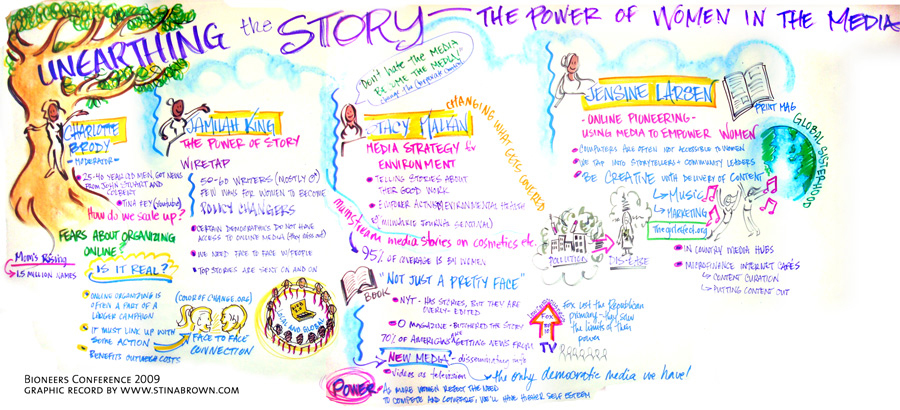 UNEARTHING the STORY — THE POWER OF WOMEN IN THE MEDIA
CHARLOTTE
BRODY
- MODERATOR -
FROM JON STEWART AND
COLBERT
TINA FEY (Youtube)
How do we scale up?
FEARS ABOUT ORGANIZING
ONLINE
Mom's Rising
1.5 MILLION NAMES
IS IT REAL?
ONLINE ORGANIZING IS
OFTEN A PART OF A
LARGER CAMPAIGN
IT MUST LINK UP WITH
SOME ACTION
BENEFITS OUTWEIGH COSTS
JAMILAH KING
THE POWER OF STORY
WIRETAP
50-60 WRITERS (MOSTLY ♂)
FEW WAYS FOR WOMEN TO BECOME
POLICY CHANGERS
CERTAIN DEMOGRAPHICS DO NOT HAVE
ACCESS TO ONLINE MEDIA
WE NEED FACE TO FACE W/PEOPLE
TOP STORIES ARE SENT ON AND ON
(COLOR OF CHANGE.ORG)
FACE TO FACE
CONNECTION
LOCAL AND GLOBAL
"Don't hate THE MEDIA
BECOME THE MEDIA"
change the
STACY MALKAN
CHANGING WHAT GETS COVERED
MEDIA STRATEGY for
ENVIRONMENT
TELLING STORIES ABOUT
THEIR GOOD WORK
ENVIRONMENTAL HEALTH
MILWAUKEE JOURNAL SENTINAL
mainstream media stories on cosmetics etc.
95% OF COVERAGE IS BY WOMEN
POLLUTION
DISEASE
BOOK
"NOT JUST A PRETTY FACE"
NYT - HAS STORIES, BUT THEY ARE
OVERLY-EDITED
O MAGAZINE - BUTCHERED THE STORY
70% OF AMERICANS ARE GETTING NEWS FROM
TV
FOX
Fox led the Republican
primary - they saw
the limits of their
power
NEW MEDIA - disseminating info
Videos as television
the only democratic media we have!
POWER
AS MORE WOMEN REJECT THE NEED
TO COMPETE AND COMPARE, WE'LL HAVE HIGHER SELF ESTEEM
JENSINE LARSEN
- ONLINE PIONEERING -
USING MEDIA TO EMPOWER WOMEN
PRINT MAG
GLOBAL SISTERHOOD
COMPUTERS ARE OFTEN NOT ACCESSIBLE TO WOMEN
WE TAP INTO STORYTELLERS + COMMUNITY LEADERS
BE CREATIVE WITH DELIVERY OF CONTENT
MUSIC
MARKETING
Thegirleffect.org
IN COUNTRY MEDIA HUBS
MICROFINANCE INTERNET CAFÉS
CONTENT CURATION
PUTTING CONTENT OUT
BIONEERS CONFERENCE 2009
GRAPHIC RECORD BY WWW.STINABROWN.COM